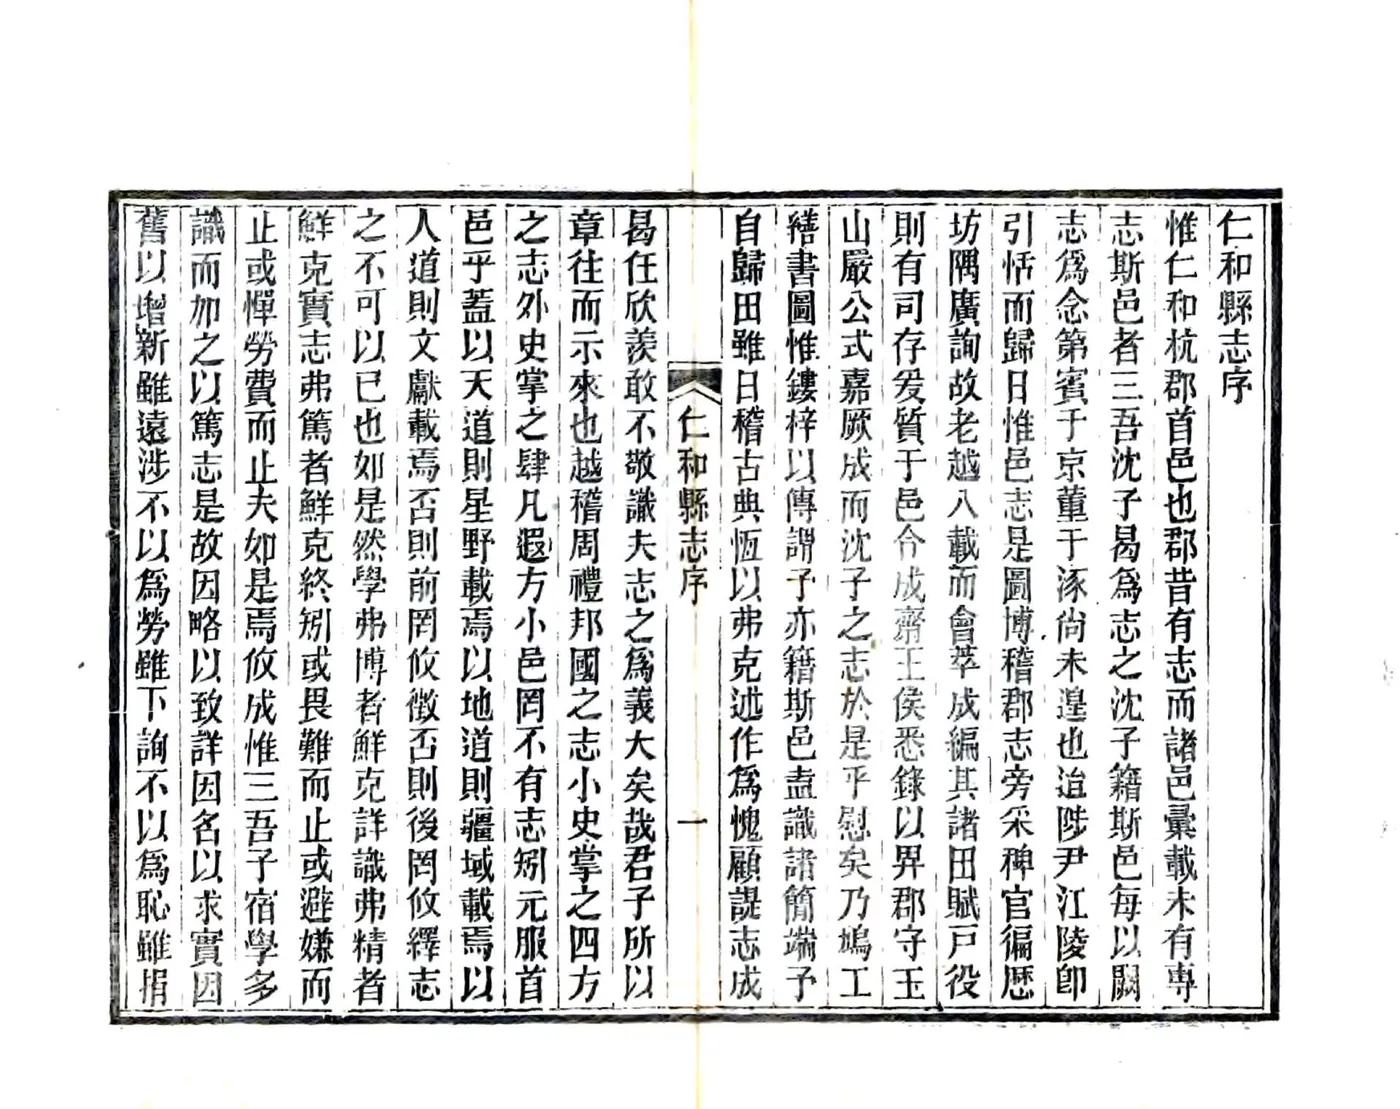 仁和縣志序
惟仁和杭郡首邑也郡昔有志而諸邑彚載未有專
志斯邑者三吾沈子曷爲志之沈子籍斯邑每以闕
志爲念第賓于京董于涿尙未遑也迨陟尹江陵卽
引恬而歸日惟邑志是圖博稽郡志旁采稗官徧歷
坊隅廣詢故老越八載而會萃成編其諸田賦戸役
則有司存爰質于邑令成齋王侯悉錄以畀郡守玉
山嚴公式嘉厥成而沈子之志於是乎慰矣乃鳩工
繕書圖惟鏤梓以傳謂予亦籍斯邑盍識諸簡端予
自歸田雖日稽古典恆以弗克述作爲愧顧諟志成
仁和縣志序
一
曷任欣羨敢不敬識夫志之爲義大矣哉君子所以
章往而示來也越稽周禮邦國之志小史掌之四方
之志外史掌之肆凡遐方小邑罔不有志矧元服首
邑乎蓋以天道則星野載焉以地道則疆域載焉以
人道則文獻載焉否則前罔攸徵否則後罔攸繹志
之不可以已也如是然學弗博者鮮克詳識弗精者
鮮克實志弗篤者鮮克終矧或畏難而止或避嫌而
止或憚勞費而止夫如是焉攸成惟三吾子宿學多
識而加之以篤志是故因略以致詳因名以求實因
舊以增新雖遠涉不以爲勞雖下詢不以爲恥雖捐